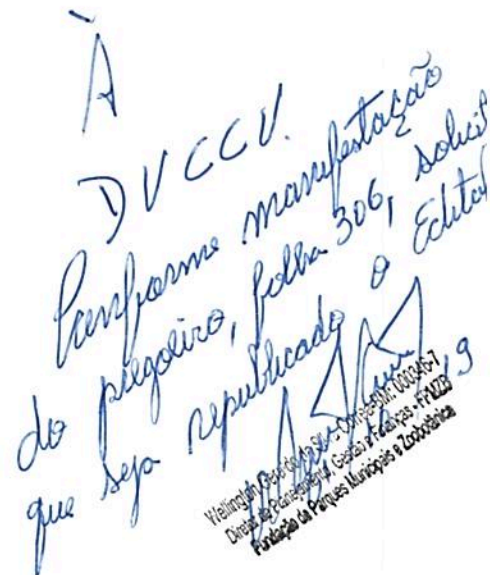 À
DVCCV.
Conforme manifestação
do pregoeiro, folha 306, solicit
que seja republicado o Edital
19
Wellington
Diretor de Planejamento, Gestão e Finanças - FPMZB
Fundação de Parques Municipais e Zoobotânica